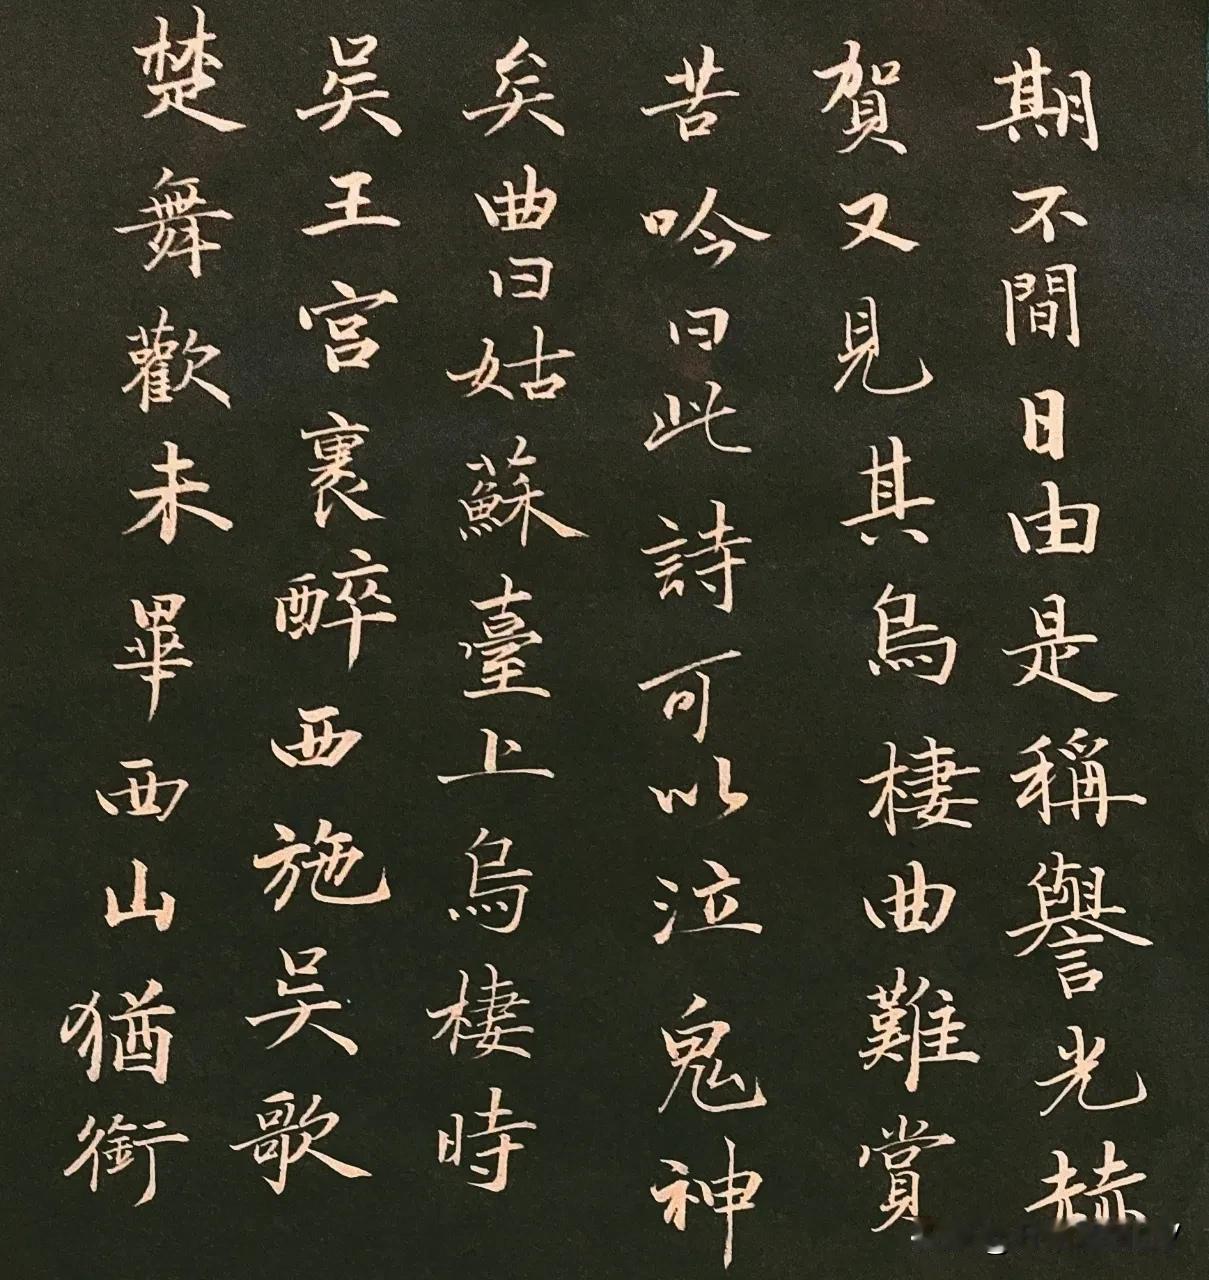 期不間日由是稱譽光赫
賀又見其烏棲曲難賞
苦吟曰此詩可以泣鬼神
矣曲曰姑蘇臺上烏棲時
吳王宮裏醉西施吳歌
楚舞歡未畢西山猶銜